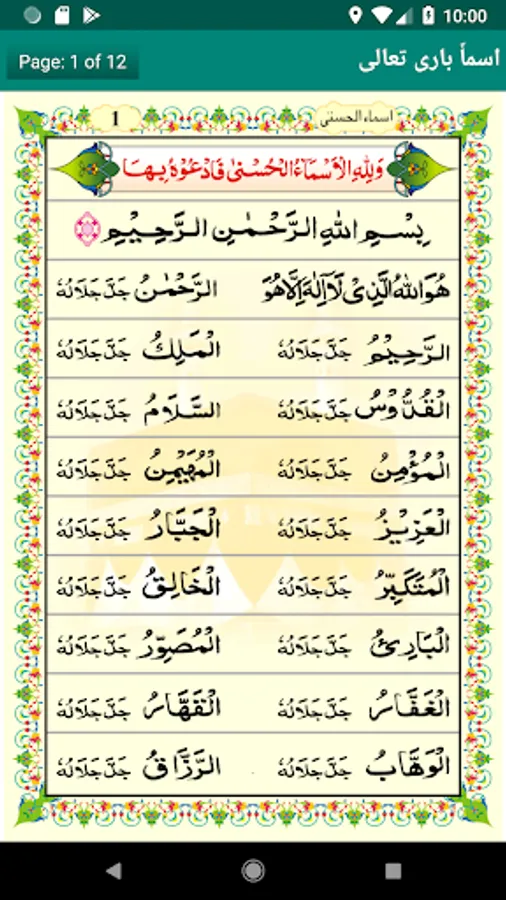 10:00
Page: 1 of 12
اسمأ باری تعالی
1
اسماء الحسنى
وَلِلّٰهِ الْاَسْمَآءُ الْحُسْنٰى فَادْعُوْهُ بِهَا
بِسْمِ اللّٰهِ الرَّحْمٰنِ الرَّحِيْمِ
هُوَ اللّٰهُ الَّذِىْ لَاۤ اِلٰهَ اِلَّا هُوَ الرَّحْمٰنُ جَلَّ جَلَالُهٗ
الرَّحِيْمُ جَلَّ جَلَالُهٗ الْمَلِكُ جَلَّ جَلَالُهٗ
الْقُدُّوْسُ جَلَّ جَلَالُهٗ السَّلَامُ جَلَّ جَلَالُهٗ
الْمُؤْمِنُ جَلَّ جَلَالُهٗ الْمُهَيْمِنُ جَلَّ جَلَالُهٗ
الْعَزِيْزُ جَلَّ جَلَالُهٗ الْجَبَّارُ جَلَّ جَلَالُهٗ
الْمُتَكَبِّرُ جَلَّ جَلَالُهٗ الْخَالِقُ جَلَّ جَلَالُهٗ
الْبَارِئُ جَلَّ جَلَالُهٗ الْمُصَوِّرُ جَلَّ جَلَالُهٗ
الْغَفَّارُ جَلَّ جَلَالُهٗ الْقَهَّارُ جَلَّ جَلَالُهٗ
الْوَهَّابُ جَلَّ جَلَالُهٗ الرَّزَّاقُ جَلَّ جَلَالُهٗ